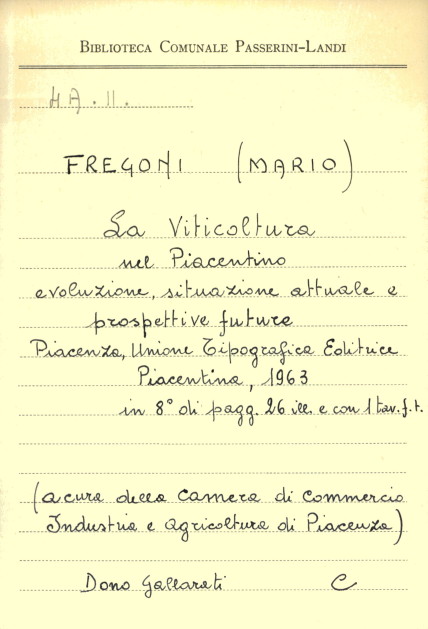 BIBLIOTECA COMUNALE PASSERINI-LANDI
4A. II.
FREGONI (MARIO)
La Viticoltura
nel Piacentino
evoluzione, situazione attuale e
prospettive future
Piacenza, Unione Tipografica Editrice
Piacentina, 1963
in 8° di pagg. 26 ill. e con 1 tav. f. t.
(a cura della Camera di Commercio
Industria e Agricoltura di Piacenza)
Dono Gallarati C